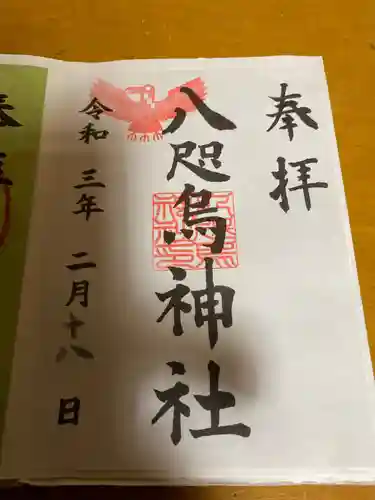 奉拝
八咫烏神社
令和三年二月十八日